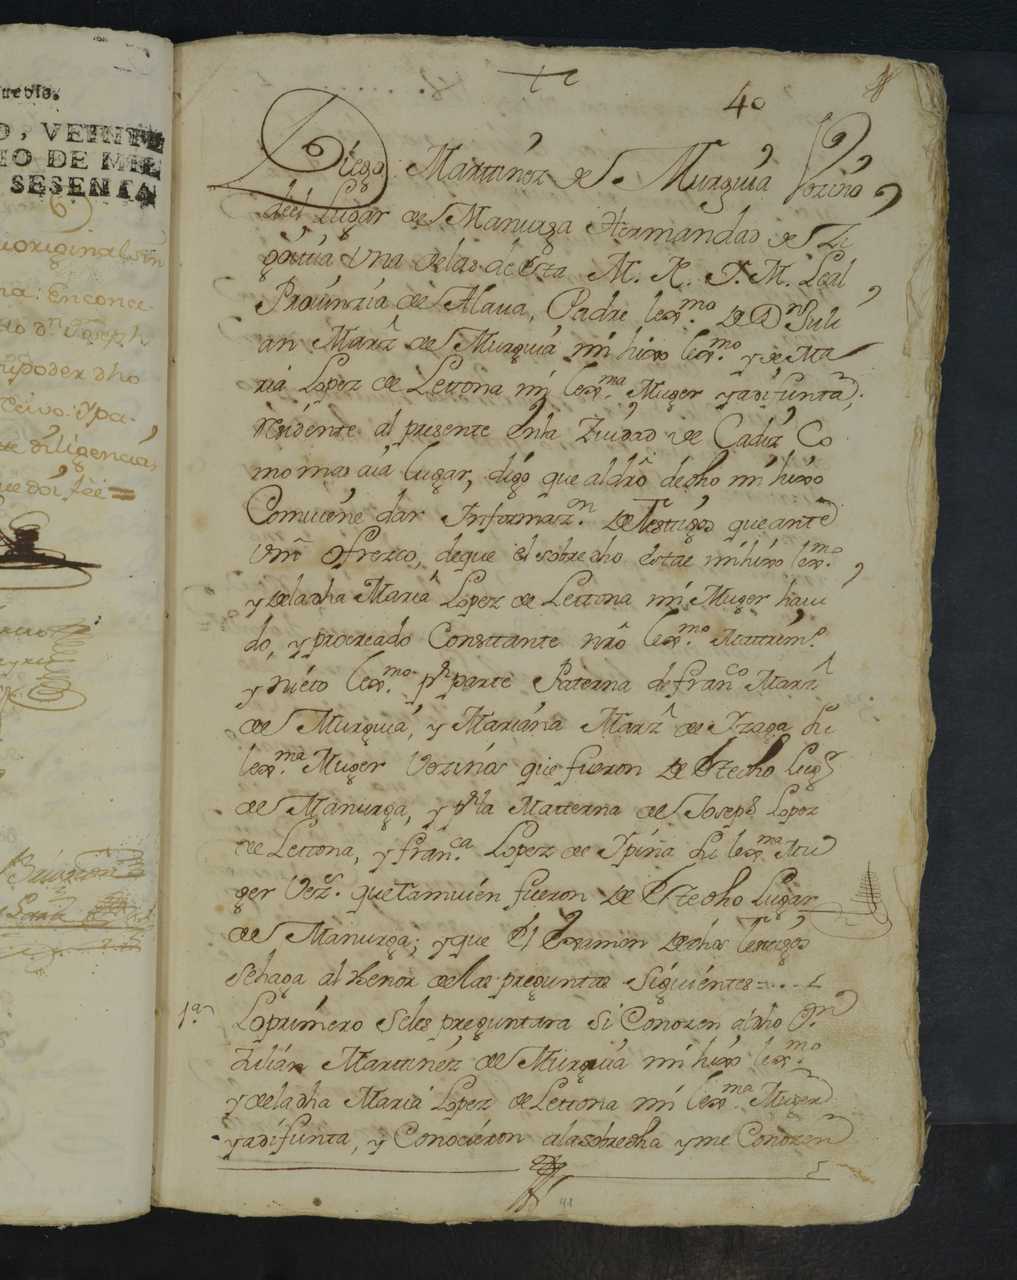 uevis.
O, VEINTE
IO DE MIL
SESENTA
original
na: Enconce
dn Joseph
poder dho
recivo: Ypa
diligencia
que doi fee =
40
Diego Martinez de Murguia Vezino
del Lugar de Manurga Hermandad de Zi
goitia Una delas de esta M. N. Y. M. Leal
Prouinzia de Alaua, Padre lexmo. de Dn. Juli
an Marz de Murguia mi hixo lexmo. y de Ma
ria Lopez de Letona mi lexma. Muger ya difunta,
residente al presente enla Ziudad de Cadiz Co
mo mas aia lugar, digo que al dro de dho mi hixo
Comuiene dar Informazn. de Testigos que ante
Vm ofrezco, deque el sobredho es tal mi hixo lexmo.,
y de la dha Maria Lopez de Letona mi Muger haui
do, y procreado Consttante nro lexmo. Mattrimo.
y nieto lexmo. pr parte Paterna de Franco Marz
de Murguia, y Mariana Marz de Yzaga su
lexma. Muger Vezinos que fueron de este dho lugr
de Manurga, y pr la Matterna de Joseph Lopez
de Lettona, y Franca. Lopez de Ypiña su lexma. Mu
ger Vezs. que tamuien fueron de este dho Lugar
de Manurga; y que el examen de dhos testigos
se haga al thenor de las preguntas siguientes=
1a. Lo primero seles preguntara si Conozen al dho Dn.
Julian Martinez de Murguia mi hixo lexmo.
y de la dha Maria Lopez de Lettona mi lexma. Muger
ya difunta, y Conocieron ala sobredha y me Conozen
41